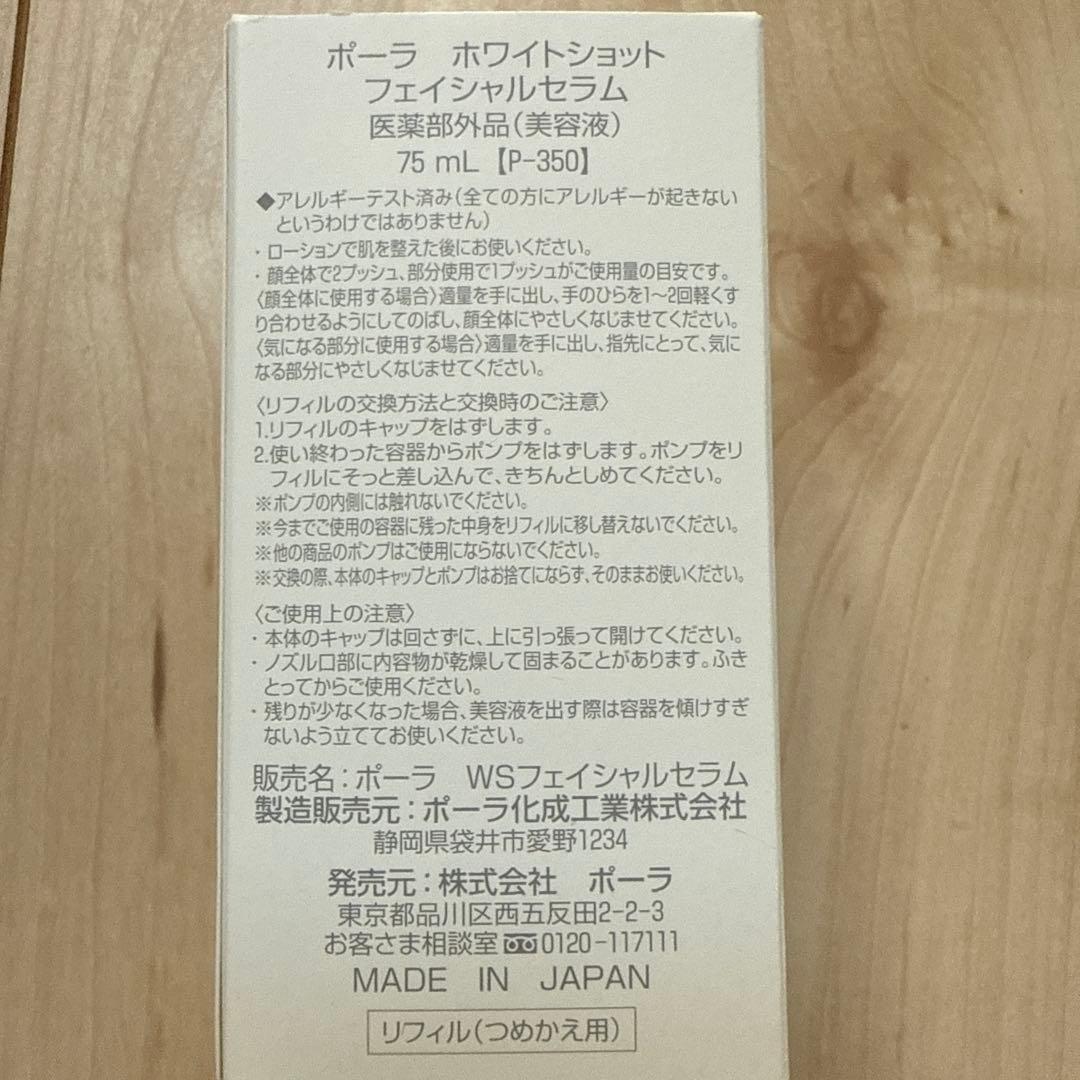 ポーラ　ホワイトショット
フェイシャルセラム
医薬部外品(美容液)
75 mL【P-350】
◆アレルギーテスト済み(全ての方にアレルギーが起きない
というわけではありません)
・ローションで肌を整えた後にお使いください。
・顔全体で2プッシュ、部分使用で1プッシュがご使用量の目安です。
〈顔全体に使用する場合〉適量を手に出し、手のひらを1〜2回軽くす
り合わせるようにしてのばし、顔全体にやさしくなじませてください。
〈気になる部分に使用する場合〉適量を手に出し、指先にとって、気に
なる部分にやさしくなじませてください。
〈リフィルの交換方法と交換時のご注意〉
1.リフィルのキャップをはずします。
2.使い終わった容器からポンプをはずします。ポンプをリ
フィルにそっと差し込んで、きちんとしめてください。
※ポンプの内側には触れないでください。
※今までご使用の容器に残った中身をリフィルに移し替えないでください。
※他の商品のポンプはご使用にならないでください。
※交換の際、本体のキャップとポンプはお捨てにならず、そのままお使いください。
〈ご使用上の注意〉
・本体のキャップは回さずに、上に引っ張って開けてください。
・ノズル口部に内容物が乾燥して固まることがあります。ふき
とってからご使用ください。
・残りが少なくなった場合、美容液を出す際は容器を傾けすぎ
ないよう立ててお使いください。
販売名:ポーラ　WSフェイシャルセラム
製造販売元:ポーラ化成工業株式会社
静岡県袋井市愛野1234
発売元:株式会社　ポーラ
東京都品川区西五反田2-2-3
お客さま相談室 0120-117111
MADE IN JAPAN
リフィル(つめかえ用)